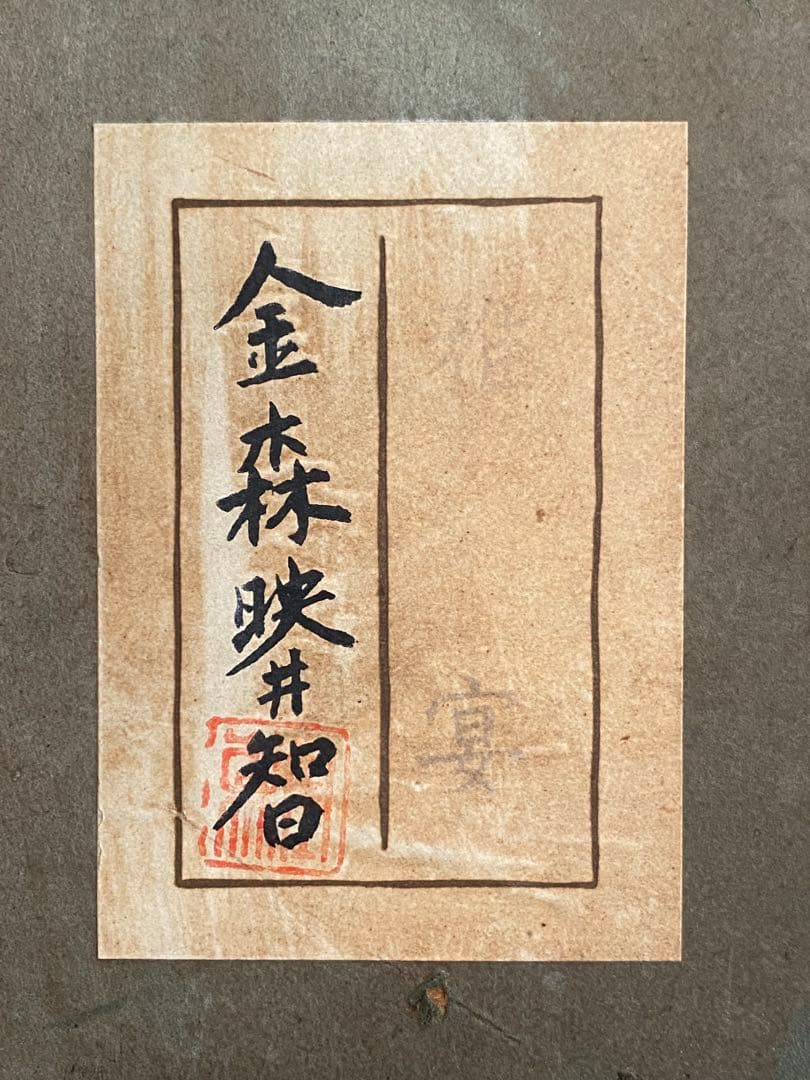 宴
金森映井智